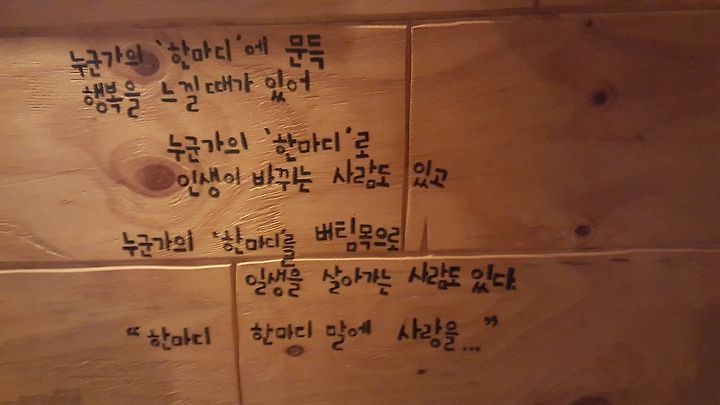 누군가의 '한마디'에 문득
행복을 느낄때가 있어
누군가의 '한마디'로
인생이 바뀌는 사람도 있고
누군가의 '한마디'를 버팀목으로
일생을 살아가는 사람도 있다.
"한마디 한마디 말에 사랑을..."